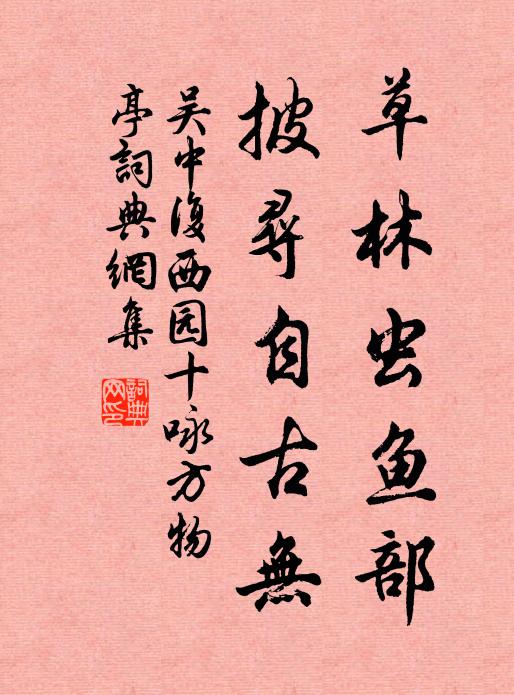 草林虫鱼部
披寻自古無
吴中復西园十咏方物
亭詞典網集
詞典
网印